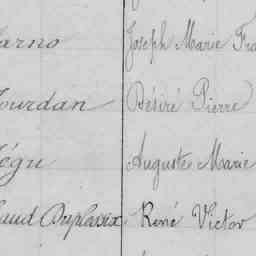 arno Joseph Marie Fra
ourdan Désiré Pierre
égu Auguste Marie
aud Duplessix René Victor